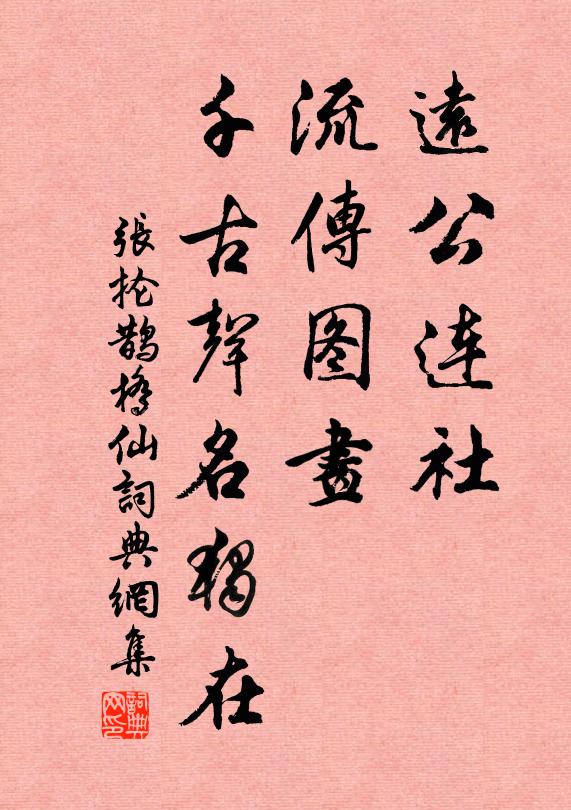 遠公連社
流傳图畫
千古聲名獨在
張抡鵲橋仙詞典網集
詞典网印